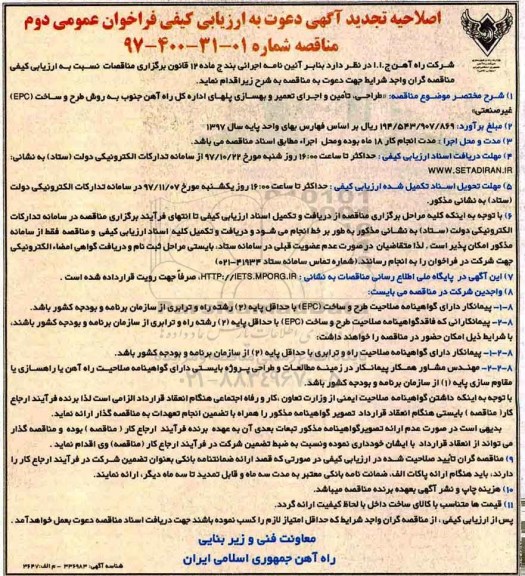 اصلاحیه تجدید آگهی دعوت به ارزیابی کیفی فراخوان عمومی دوم
مناقصه شماره ۰۱-۳۱-۴۰۰-۹۷
شرکت راه آهن ج.ا.ا در نظر دارد بنابر آئین نامه اجرائی بند ج ماده ۱۲ قانون برگزاری مناقصات نسبت به ارزیابی کیفی
مناقصه گران واجد شرایط جهت دعوت به مناقصه به شرح زیر اقدام نماید.
۱) شرح مختصر موضوع مناقصه: «طراحی، تأمین و اجرای تعمیر و بهسازی پلهای اداره کل راه آهن جنوب به روش طرح و ساخت (EPC)
غیرصنعتی»
۲) مبلغ برآورد: ۱۹۴/۵۴۳/۹۰۷/۸۶۹ ریال بر اساس فهارس بهای واحد پایه سال ۱۳۹۷
۳) مدت و محل اجرا : مدت انجام کار ۱۸ ماه بوده و محل اجراء مطابق اسناد مناقصه می باشد.
۴) مهلت دریافت اسناد ارزیابی کیفی : حداکثر تا ساعت ۱۶:۰۰ روز شنبه مورخ ۹۷/۱۰/۲۲ از سامانه تدارکات الکترونیکی دولت (ستاد) به نشانی:
WWW.SETADIRAN.IR
۵) مهلت تحویل اسناد تکمیل شده ارزیابی کیفی : حداکثر تا ساعت ۱۶:۰۰ روز یکشنبه مورخ ۹۷/۱۱/۰۷ در سامانه تدارکات الکترونیکی دولت
(ستاد) به نشانی مذکور.
۶) با توجه به اینکه کلیه مراحل برگزاری مناقصه از دریافت و تکمیل اسناد ارزیابی کیفی تا انتهای فرآیند برگزاری مناقصه در سامانه تدارکات
الکترونیکی دولت (ستاد) به نشانی مذکور به طور بر خط انجام می شود و دریافت و تکمیل کلیه اسناد ارزیابی کیفی و مناقصه فقط از سامانه
مذکور امکان پذیر است , لذا متقاضیان در صورت عدم عضویت قبلی در سامانه ستاد، بایستی مراحل ثبت نام و دریافت گواهی امضاء الکترونیکی
جهت شرکت در فراخوان را به انجام رسانند.(شماره تماس سامانه ستاد ۴۱۹۳۴-۰۲۱)
۷) این آگهی در پایگاه ملی اطلاع رسانی مناقصات به نشانی : HTTP://IETS.MPORG.IR، صرفاً جهت رویت قرار داده شده است .
۸) واجدین شرکت در مناقصه می بایست:
۸-۱- پیمانکار دارای گواهینامه صلاحیت طرح و ساخت (EPC) با حداقل پایه (۲) رشته راه و ترابری از سازمان برنامه و بودجه کشور باشد.
۸-۲- پیمانکارانی که فاقد گواهینامه صلاحیت طرح و ساخت (EPC) با حداقل پایه (۲) رشته راه و ترابری از سازمان برنامه و بودجه کشور باشند،
با شرایط ذیل امکان حضور در مناقصه را خواهند داشت:
۸-۲-۱- پیمانکار دارای گواهینامه صلاحیت راه و ترابری با حداقل پایه (۲) از سازمان برنامه و بودجه کشور باشد.
۸-۲-۲- مهندس مشاور همکار پیمانکار در زمینه مطالعات و طراحی پروژه بایستی دارای گواهینامه صلاحیت راه آهن یا راهسازی یا
مقاوم سازی پایه (۱) از سازمان برنامه و بودجه کشور باشد.
با توجه به اینکه داشتن گواهینامه صلاحیت ایمنی از وزارت تعاون ،کار و رفاه اجتماعی هنگام انعقاد قرارداد الزامی است لذا برنده فرآیند ارجاع
کار( مناقصه ) بایستی هنگام انعقاد قرارداد تصویر گواهینامه مذکور را همراه با تضمین انجام تعهدات به مناقصه گذار ارائه نماید.
بدیهی است در صورت عدم ارائه تصویر گواهینامه مذکور تبعات بعدی آن به عهده برنده فرآیند ارجاع کار ( مناقصه ) بوده و مناقصه گذار
می تواند از انعقاد قرارداد با ایشان خودداری نموده ونسبت به ضبط تضمین شرکت در فرآیند ارجاع کار (مناقصه) وی اقدام نماید .
۹) مناقصه گران تأیید صلاحیت شده در ارزیابی کیفی در صورتی که قصد ارائه ضمانتنامه بانکی بعنوان تضمین شرکت در فرآیند ارجاع کار را
دارند، باید هنگام ارائه پاکات الف، ضمانت نامه بانکی معتبر به مدت سه ماه و قابل تمدید تا سه ماه دیگر، ارائه نمایند.
۱۰) هزینه چاپ و نشر آگهی بعهده برنده مناقصه میباشد.
۱۱) قیمت ها متناسب با کالای ساخت داخل با لحاظ کیفیت ارائه گردد.
پس از ارزیابی کیفی ، از مناقصه گران واجد شرایط که حداقل امتیاز لازم را کسب نموده باشند جهت دریافت اسناد مناقصه دعوت بعمل خواهدآمد .
معاونت فنی و زیر بنایی
راه آهن جمهوری اسلامی ایران
شناسه آگهی: ۳۳۶۹۸۳ - م الف:۳۶۴۷